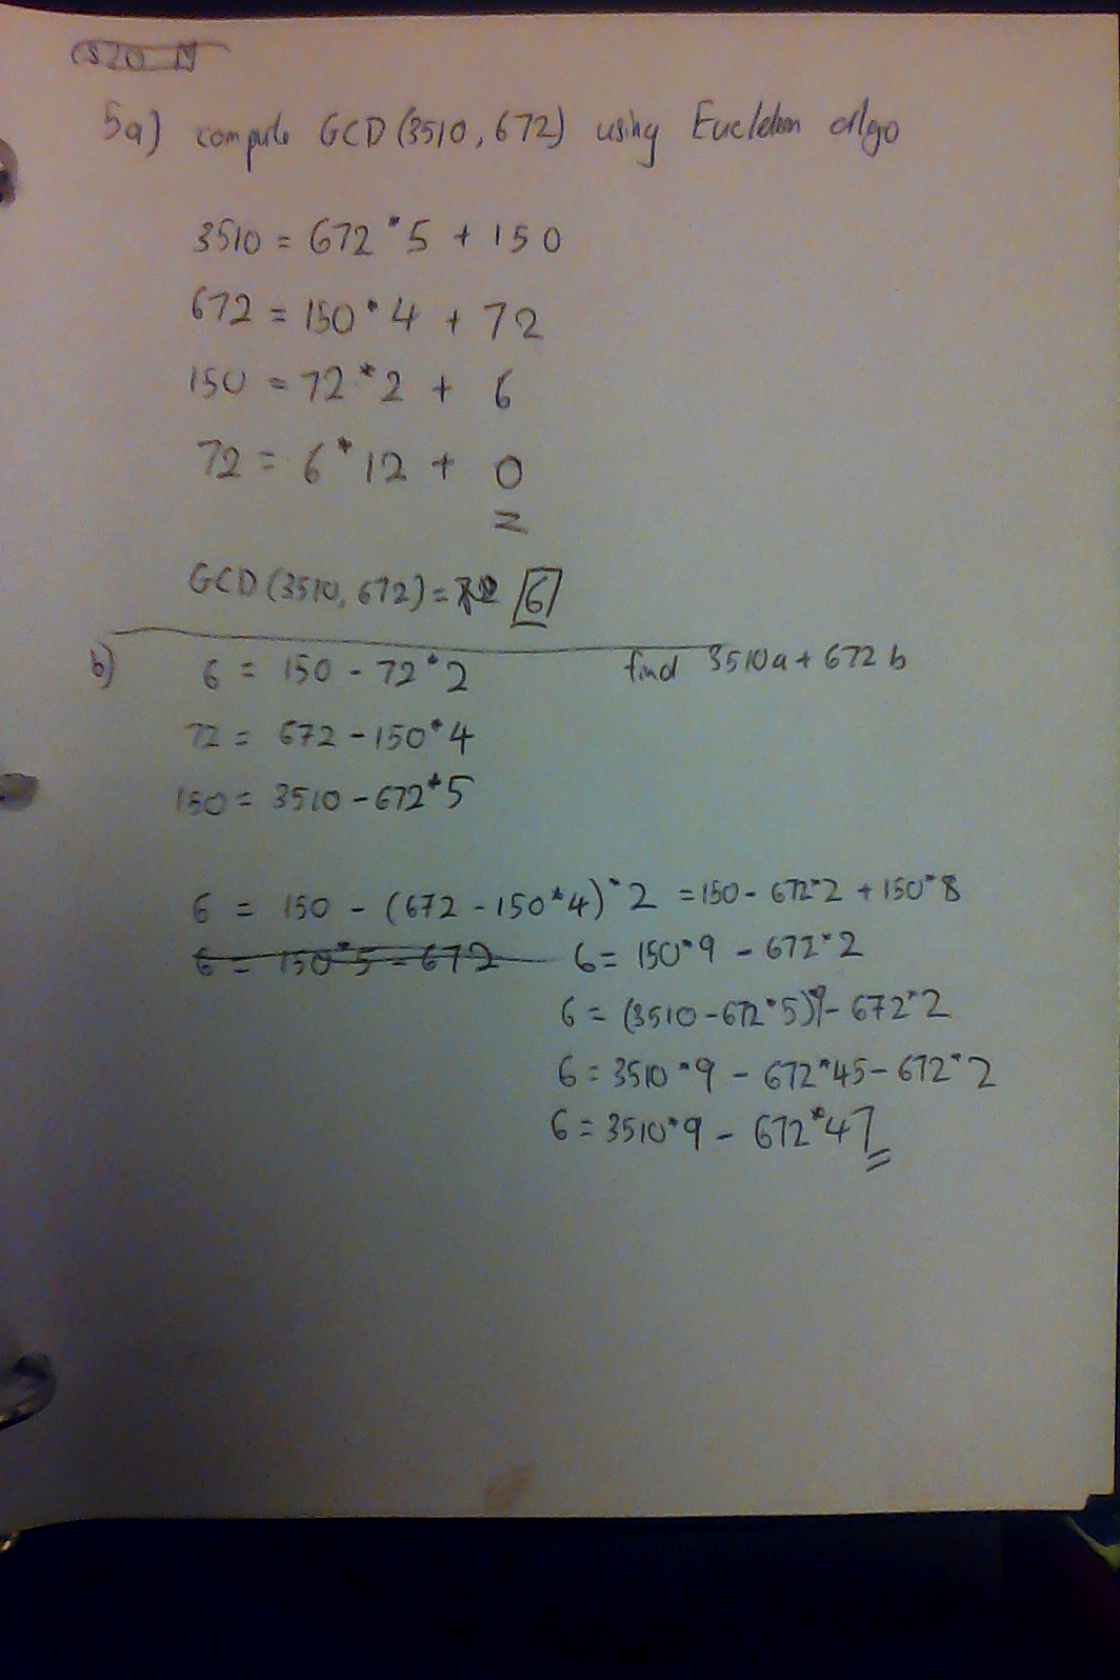 5a) compute GCD(3510, 672) using Euclidean algo
3510 = 672 * 5 + 150
672 = 150 * 4 + 72
150 = 72 * 2 + 6
72 = 6 * 12 + 0
GCD(3510, 672) = 6
b) 6 = 150 - 72 * 2 find 3510a + 672b
72 = 672 - 150 * 4
150 = 3510 - 672 * 5
6 = 150 - (672 - 150 * 4) * 2 = 150 - 672 * 2 + 150 * 8
6 = 150 * 5 - 672 6 = 150 * 9 - 672 * 2
6 = (3510 - 672 * 5)9 - 672 * 2
6 = 3510 * 9 - 672 * 45 - 672 * 2
6 = 3510 * 9 - 672 * 47